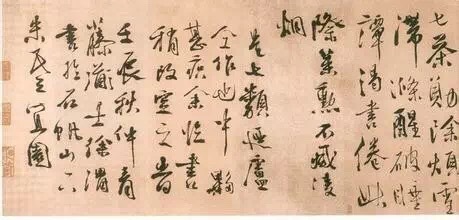 七茶勳除煩雪
滯滌醒破睡
譚渴書倦此
際策勳不減凌
烟
是七類迺盧
仝作也中夥
甚疾余臨書
稍改定之時
壬辰秋仲青
藤道士徐渭
書於石帆山下
朱氏三宜園